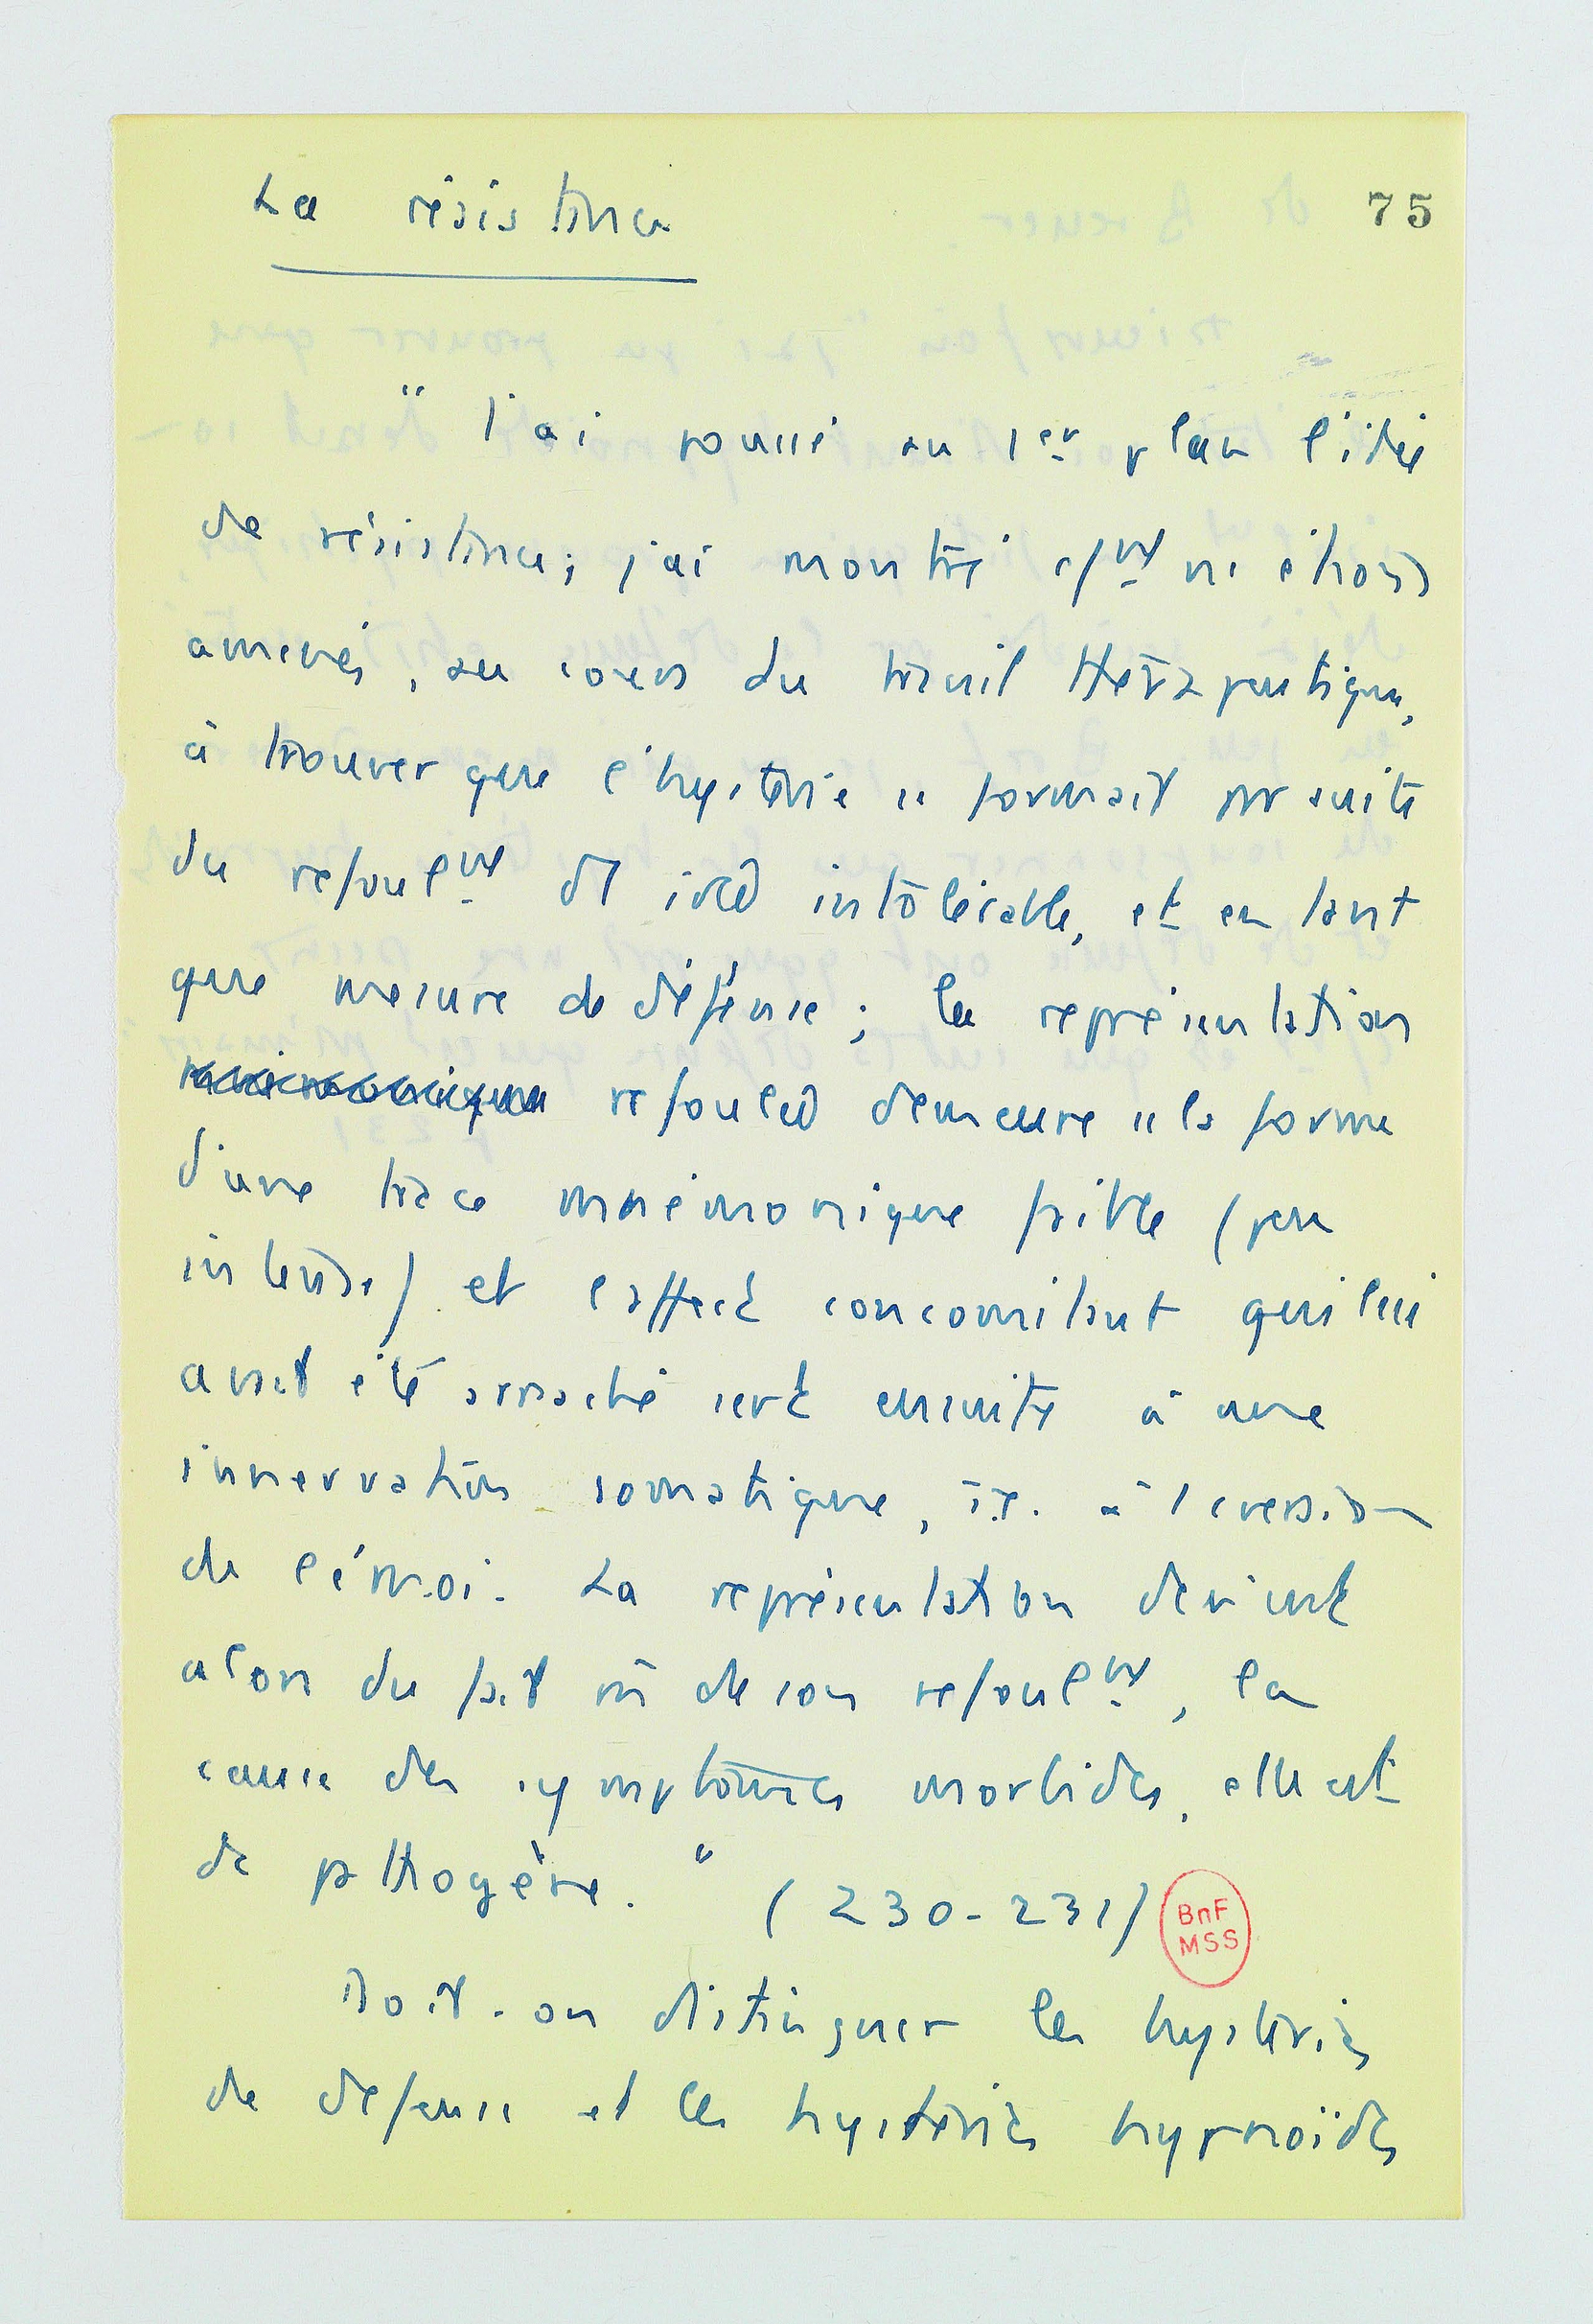 La résistance
75
"J'ai poussé au 1er plan l'idée
de résistance; j'ai montré cmt ns étions
amenés, au cours du travail thérapeutique,
à trouver que l'hystérie se formait par suite
du refoulmt d'1 idée intolérable, et en tant
que mesure de défense; la représentation
mnémonique refoulée demeure ss la forme
d'une trace mnémonique faible (peu
intense) et l'affect concomitant qui lui
avait été arraché sert ensuite à une
innervation somatique, i.e. à l
de l'émoi. La représentation devient
alors du fait de son refoulmt, la
cause des symptômes morbides, elle est
dc pathogène." (230-231)
BnF
MSS
Doit-on distinguer les hystéries
de défense et les hystéries hypnoïdes